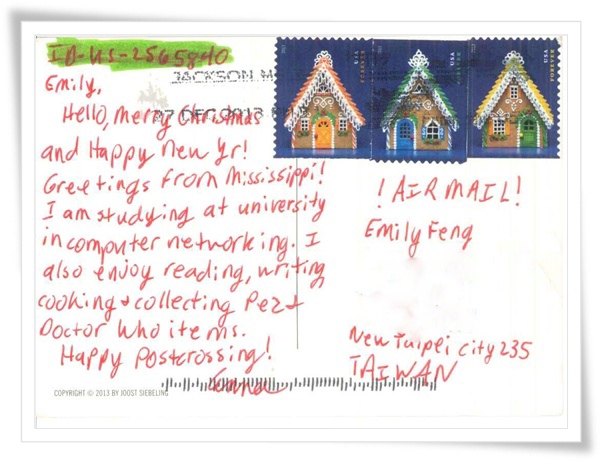 ID-US-2565840
JACKSON, M
07 DEC 2013
Emily,
Hello, Merry Christmas
and Happy New Yr!
Greetings from Mississippi!
I am studying at university
in computer networking. I
also enjoy reading, writing
cooking & collecting Pez &
Doctor Who items.
Happy Postcrossing!
COPYRIGHT © 2013 BY JOOST SIEBELING
USA FOREVER
USA FOREVER
USA FOREVER
! AIRMAIL!
Emily Feng
New Taipei City 235
TAIWAN